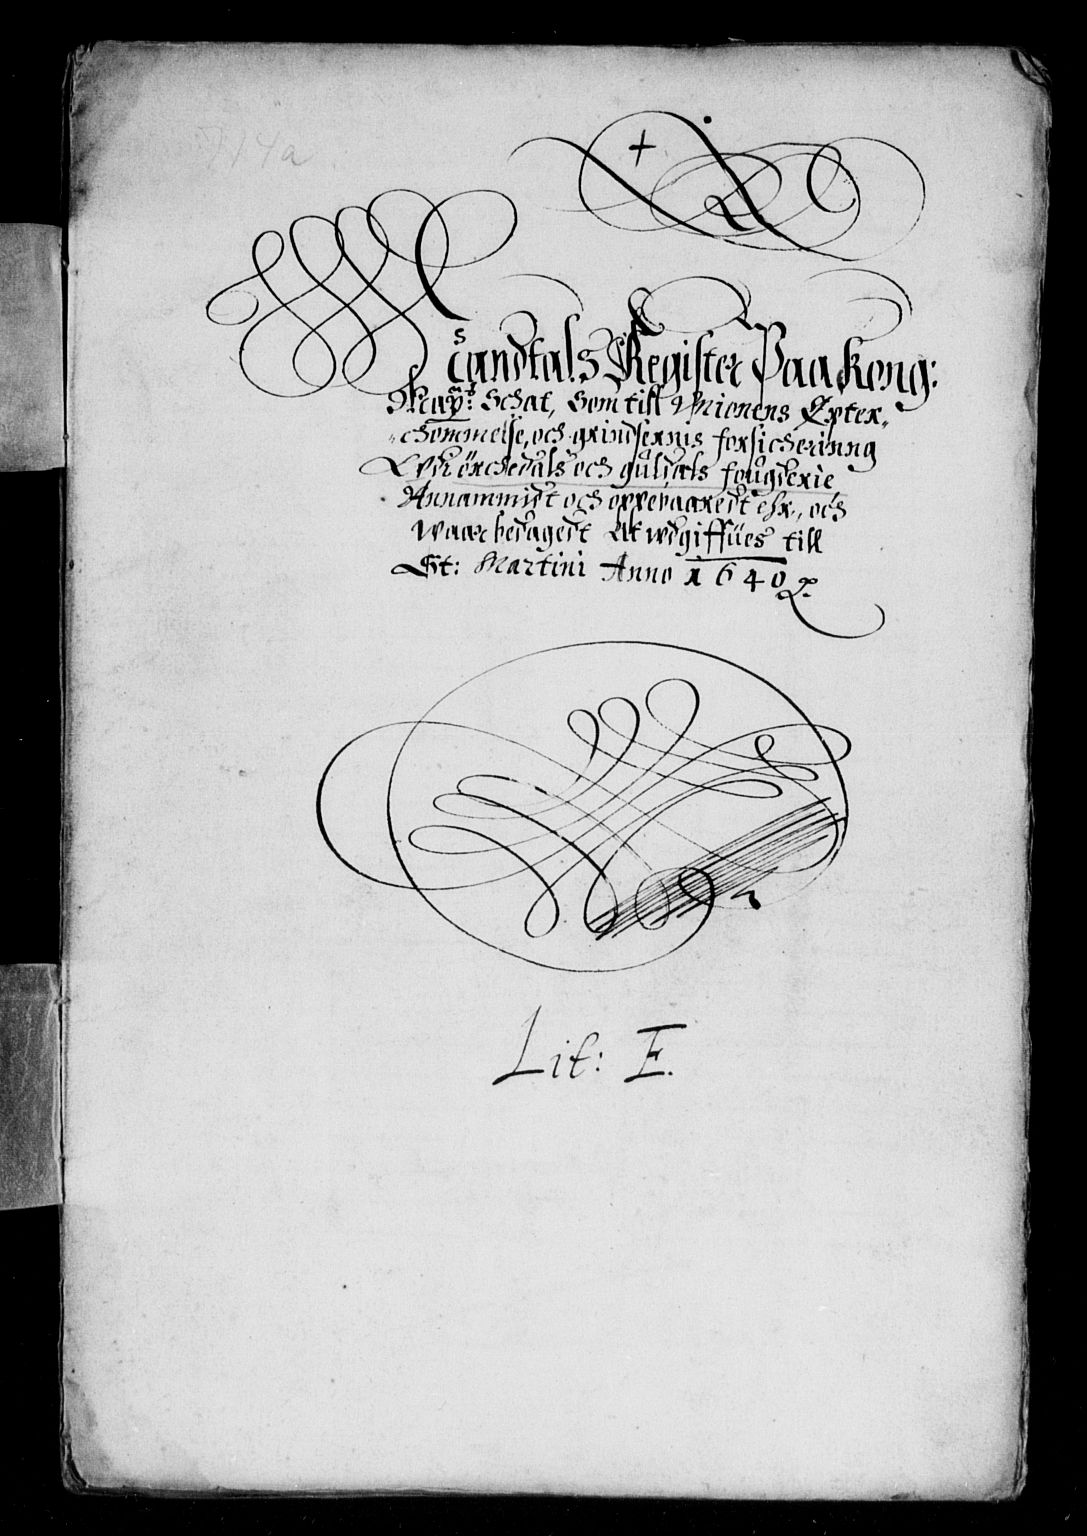 714a
Mandtals Register Paa Kong:
May:ts Schat, Som till Unionens Epter„
„chommelse, och grindsernis forsicherinng
Udi Örchedals och guldals fougderie
Annammidt och oppebaaredt ehr, och
waar bedagedt At udgiffües till
St: Martini Anno 1640
Lit: E.